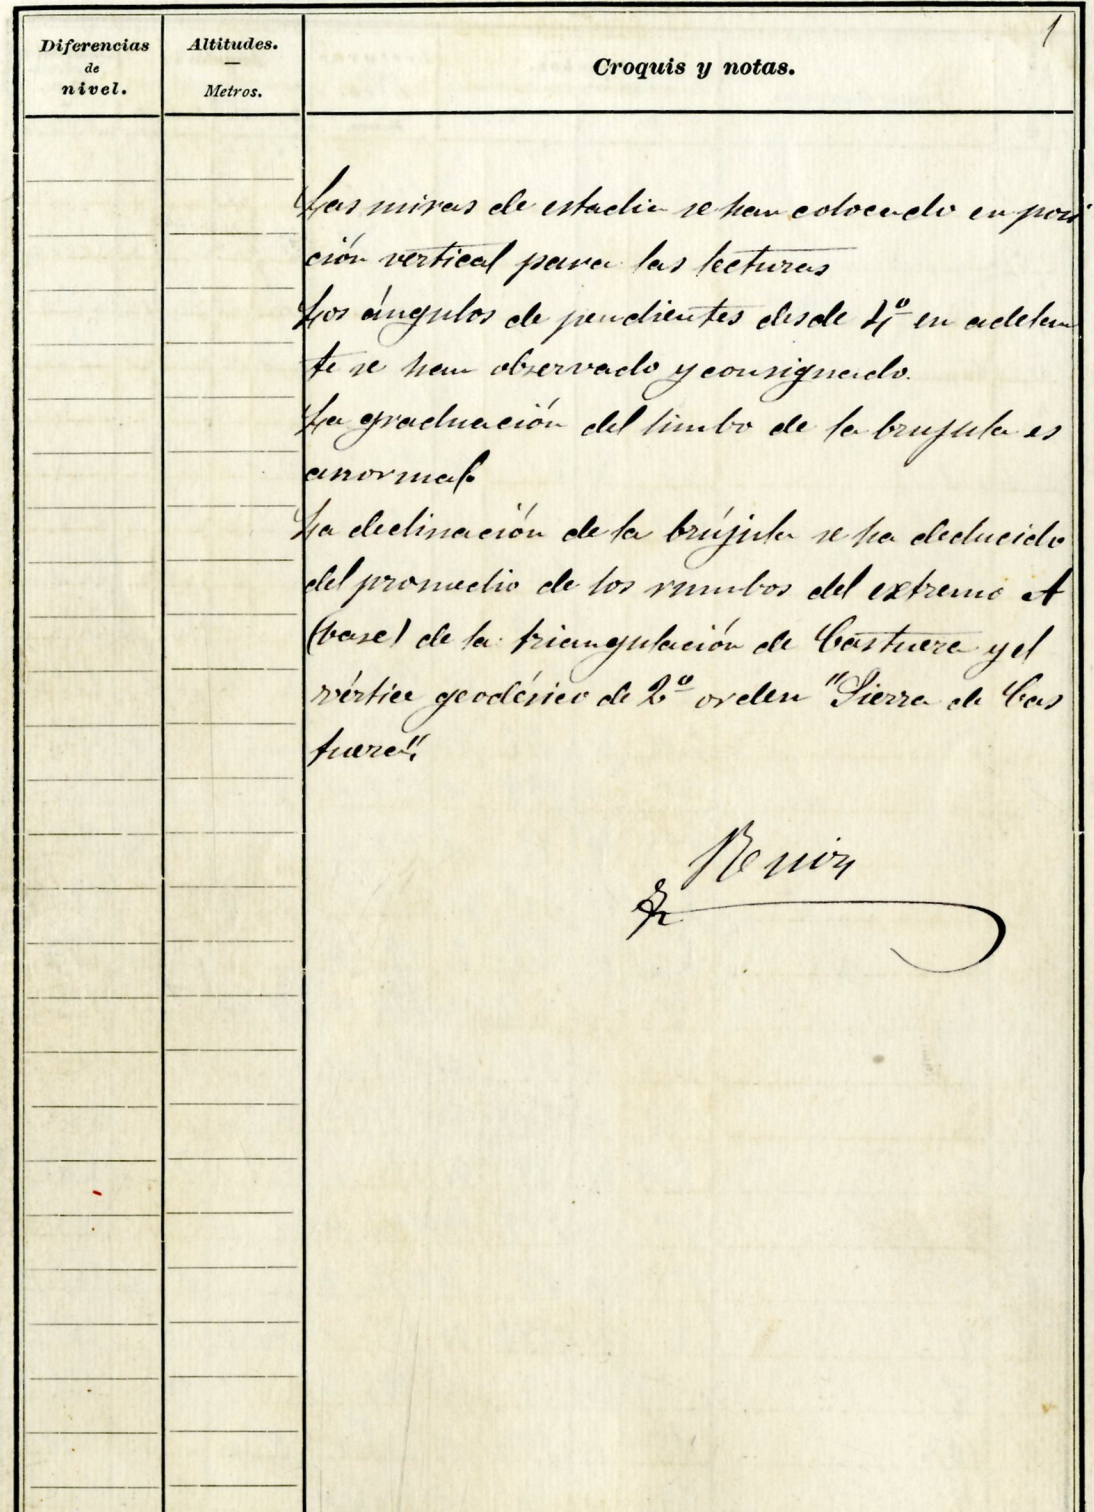 1
Diferencias
de
nivel.
Altitudes.
Metros.
Croquis y notas.
Las miras de estadia se han colocado en posi
ción vertical para las lecturas
Los ángulos de pendientes desde 4º en adelan
te se han observado y consignado.
La graduación del limbo de la brujula es
anormal.
La declinación de la brújula se ha deducido
del promedio de los rumbos del extremo A
(base) de la triangulación de Castuera y el
vértice geodésico de 2º orden "Sierra de Cas
tuera".